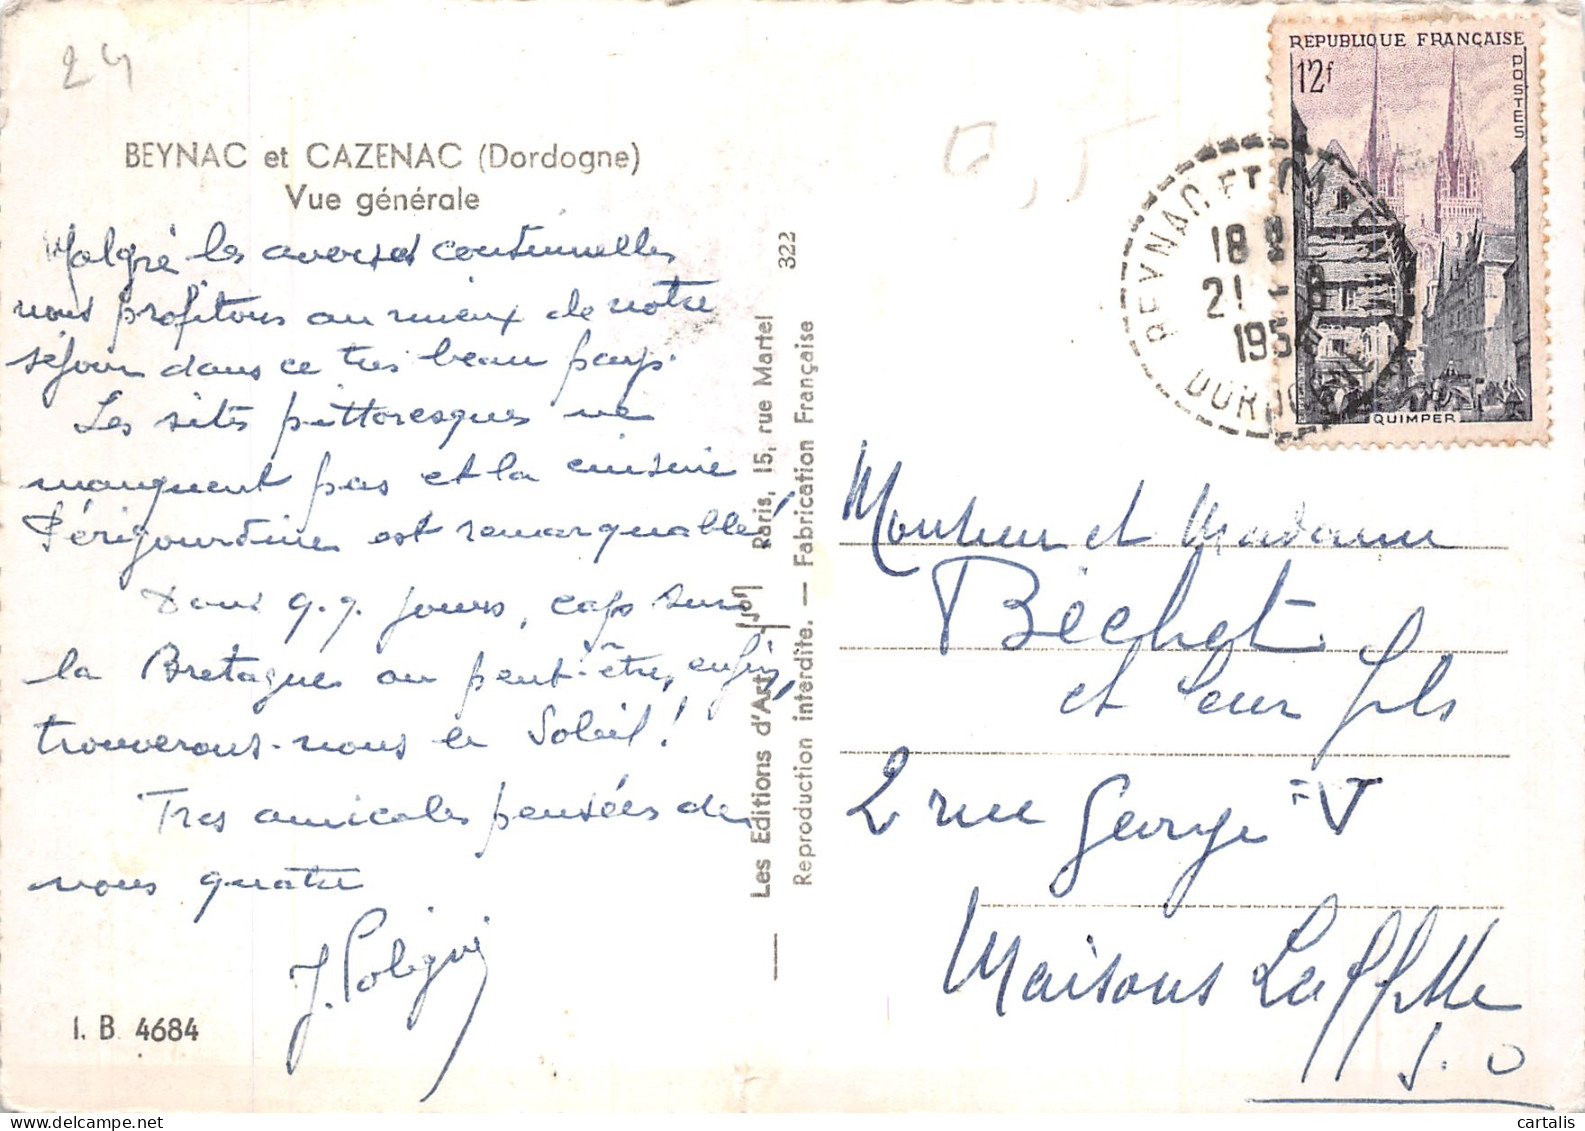 24
BEYNAC et CAZENAC (Dordogne)
Vue générale
Malgré les averses continuelles
nous profitons au mieux de notre
séjour dans ce très beau pays.
Les sites pittoresques ne
manquent pas et la cuisine
Périgourdine est remarquable!
Dans q.q. jours, cap sur
la Bretagne ou peut-être, enfin,
trouverons-nous le Soleil!
Très amicales pensées de
nous quatre
I. B 4684
Les Editions d'Art Paris, 15, rue Martel 322
Reproduction interdite. — Fabrication Française
REPUBLIQUE FRANÇAISE
12f
POSTES
QUIMPER
BEYNAC ET
18
21
195
DORDOGNE
Monsieur et Madame
Béchet
et leur fils
2 rue George V
Maisons Laffitte
S. O
cartalis